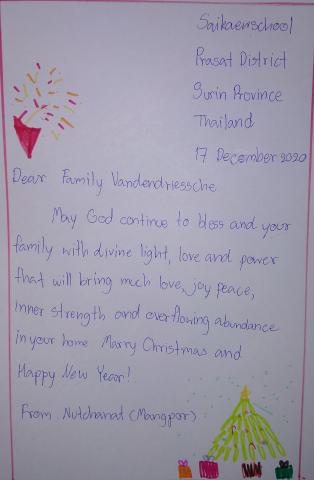 Saikaewschool
Prasat District
Surin Province
Thailand
17 December 2020
Dear Family Vandendriessche
May God continue to bless and your
family with divine light, love and power
that will bring much love, joy peace,
inner strength and overflowing abundance
in your home Marry Christmas and
Happy New Year!
From Nutchanat (Mangpor)